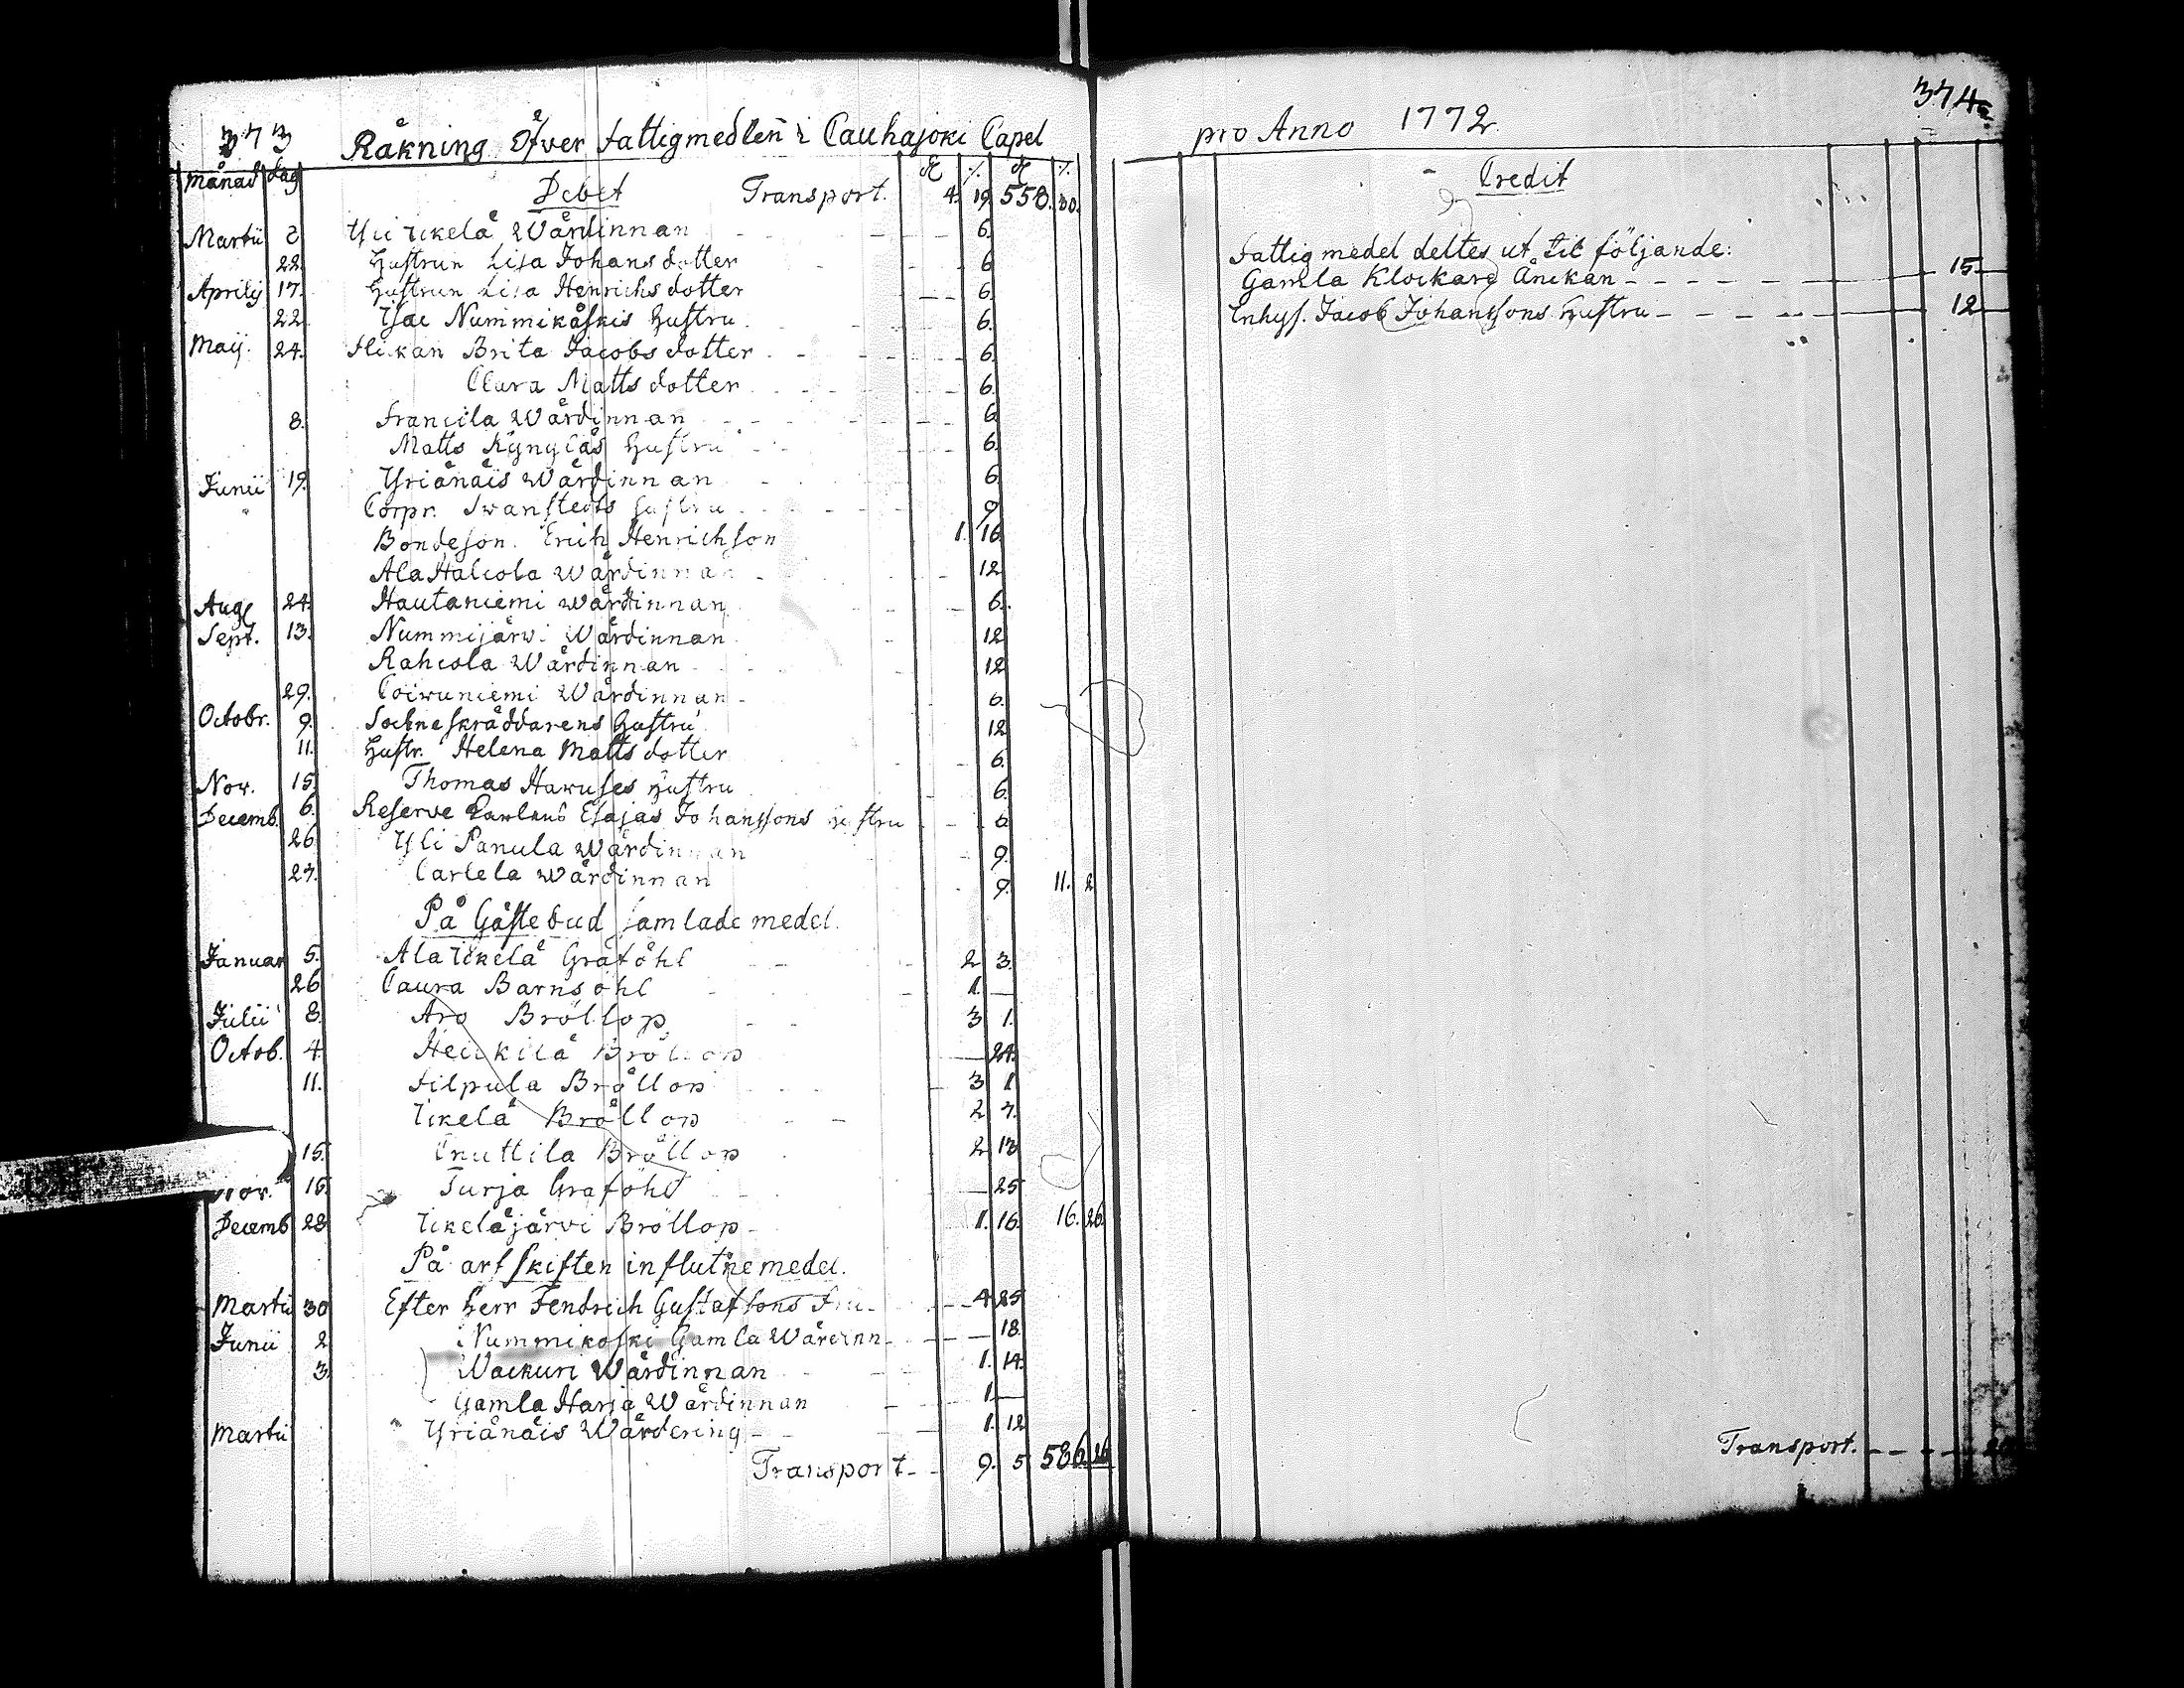 373 Räkning öfver Fattigmedlen i Cauhajoki Capel
Månad Dag Debet Transport. 4. 19. 558. 30.
Martii 2 Yli Ikelä Wärdinnan 6.
22. Hustrun Lisa Johansdotter 6
Aprilij 17. Hustrun Lisa Henrichsdotter 6.
22. Isac Nummikåskis Hustru 6.
Maij. 24. Flickan Brita Jacobsdotter 6.
Clara Mattsdotter 6.
8. Francila Wärdinnan 6.
Matts Hustru 6.
Junii 19. Yriänäis Wärdinnan 6.
Corpr. Swanstedts Hustru 9.
Bondeson. Erich Henrichson 1. 16.
Ala Halcola Wärdinnan 12
Aug. 24. Hautaniemi Wärdinnan 6.
Sept. 13. Nummijärwi Wärdinnan 12
Rahcola Wärdinnan 12
29. Coiwuniemi Wärdinnan 6.
Octobr. 9. Sockneskräddarens Hustru 12
11. Hustr. Helena Mattsdotter 6.
Nov. 15. Thomas Haruses Hustru 6.
Decemb. 6. Reserve Karlens Esajas Johanssons Hustru 6.
26. Yli Panula Wärdinnan 9.
27. Carlela Wärdinnan 9. 11. 2
På Gästebud samlade medel.
Januar 5. Ala Ikelä Graföhl 2 3.
26 Caura Barnsöhl 1. —
Julii 8. Aro Bröllop 3 1.
Octob. 4. Heickilä Bröllop — 24.
11. Filpula Bröllop 3 1
Ikelä Bröllop 2 7.
15. Cnuttila Bröllop 2 13
Nov. 16. Turja Graföhl — 25
Decemb 28 Ikeläjärvi Bröllop 1. 16. 16. 26.
På arfskiften influtne medel.
Martii 30 Efter Herr Fendrich Gustafsons Fru 4 25
Junii 2 Nummikoski Gamla Wärdinn — 18.
3. Wackuri Wärdinnan 1. 14.
Gamla Harja Wärdinnan 1. —
Martii Yriänäis Wärdering 1. 12
Transport 9. 5 586. 26.
pro Anno 1772. 374
Credit
Fattigmedel deltes ut til följande:
Gamla Klockare Änckan 15.
Inhys. Jacob Johanssons Hustru 12
Transport.